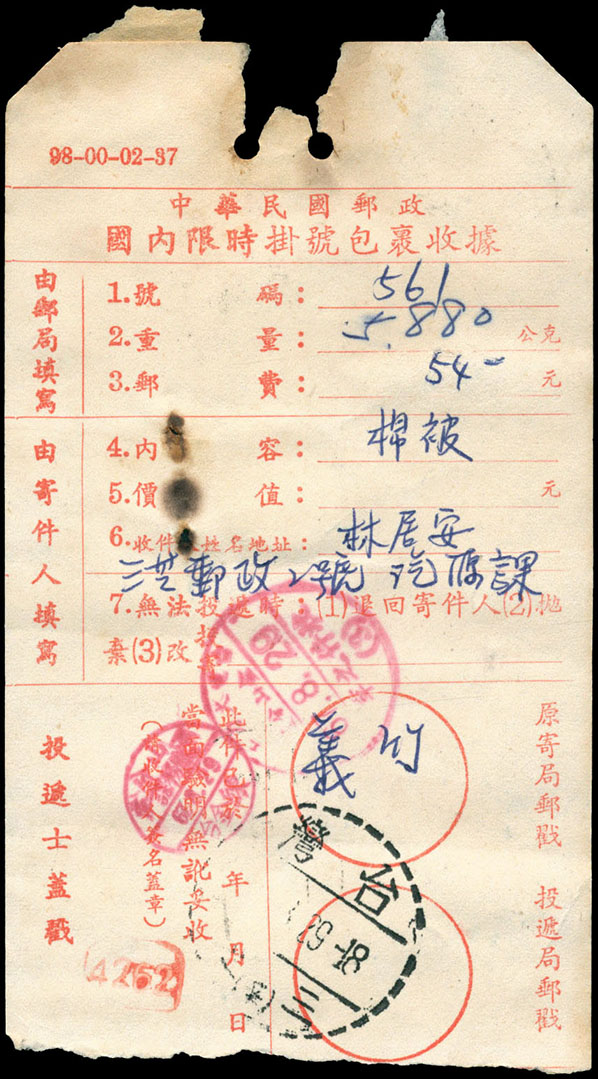 98-00-02-37
中華民國郵政
國內限時掛號包裹收據
由郵局填寫
1.號碼：561
2.重量：5.880公克
3.郵費：54-元
由寄件人填寫
4.內容：棉被
5.價值：元
6.收件人姓名地址：林居安
三芝郵政2號
課
7.無法投遞時：(1)退回寄件人(2)拋
棄(3)改
原寄局郵戳
義竹
投遞局郵戳
台灣
此件已於 年 月 日
當面驗明無訛妥收
(請收件人簽名蓋章)
投遞士蓋戳
(4262)